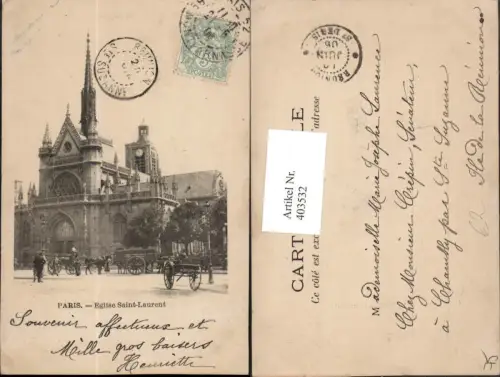 PARIS. — Eglise Saint-Laurent
Souvenir affectueux et
Mille gros baisers
Henriette
CART LE
Ce côté est ex l'adresse
Artikel Nr.
403532
Mademoiselle Marie Josèphe Laurence
Chez Monsieur Crépin, Sénateur,
à Chamilly par Ste Suzanne
Ile de la Réunion